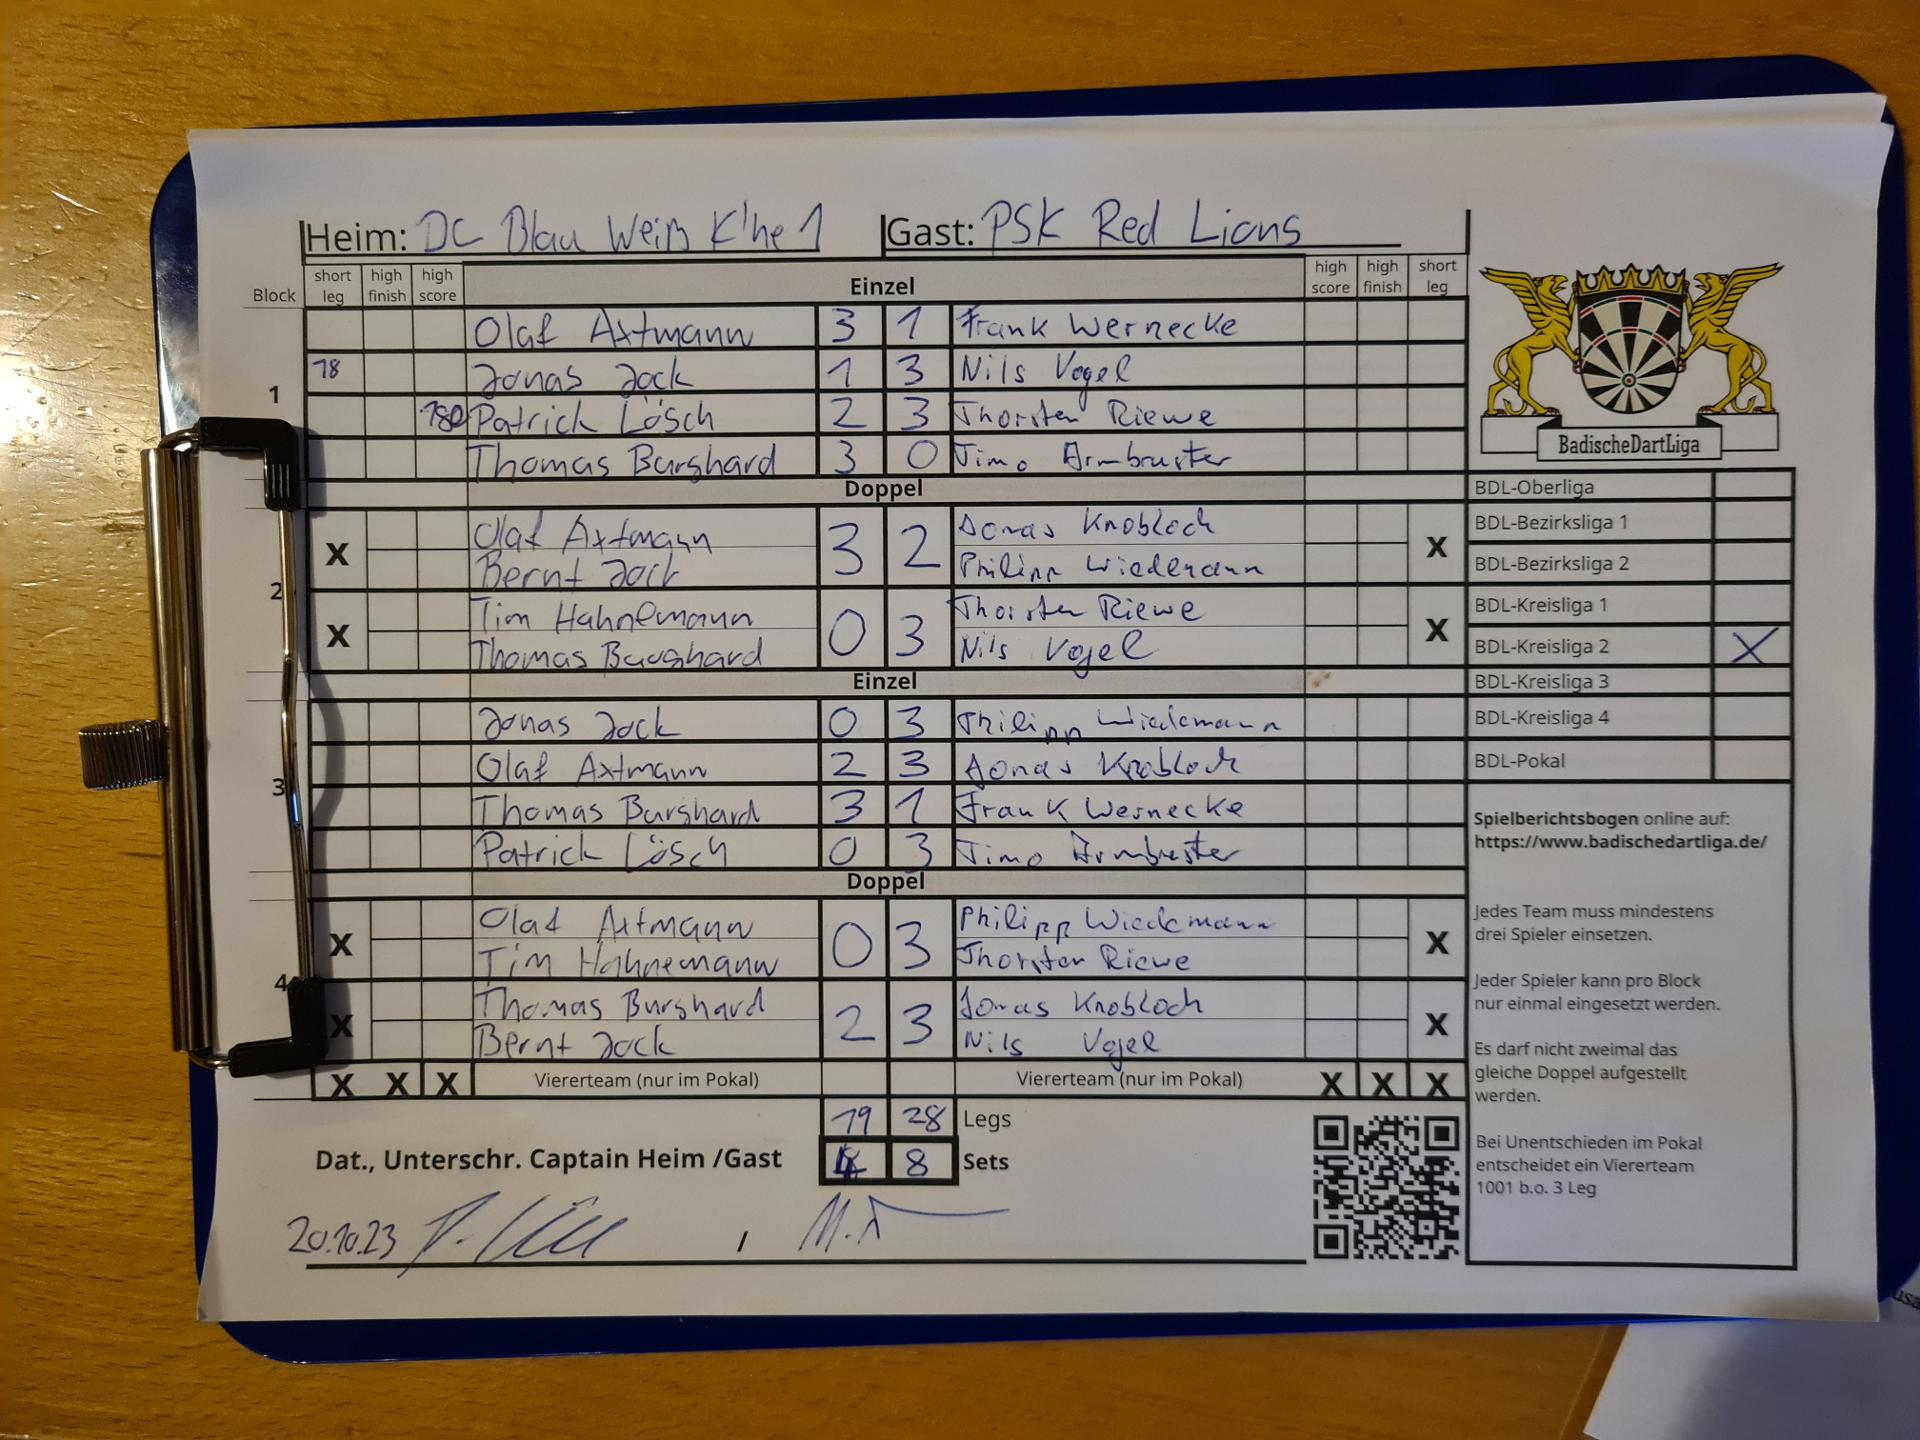 Heim: DC Blau Weiß K'he 1 Gast: PSK Red Lions
Block short leg high finish high score Einzel high score high finish short leg
Olaf Axtmann 3 1 Frank Wernecke
18 Jonas Jock 1 3 Nils Vogel
1
180 Patrick Lösch 2 3 Thorsten Riewe
Thomas Burghard 3 0 Timo Armbruster
Doppel
Olaf Axtmann Jonas Knobloch
X 3 2 X
Bernt Jock Philipp Wiedemann
2
Tim Hahnemann Thorsten Riewe
X 0 3 X
Thomas Burghard Nils Vogel
Einzel
Jonas Jock 0 3 Philipp Wiedemann
Olaf Axtmann 2 3 Jonas Knobloch
3
Thomas Burghard 3 1 Frank Wernecke
Patrick Lösch 0 3 Timo Armbruster
Doppel
Olaf Axtmann Philipp Wiedemann
X 0 3 X
Tim Hahnemann Thorsten Riewe
4
Thomas Burghard Jonas Knobloch
X 2 3 X
Bernt Jock Nils Vogel
X X X Viererteam (nur im Pokal) Viererteam (nur im Pokal) X X X
19 28 Legs
Dat., Unterschr. Captain Heim /Gast 4 8 Sets
20.10.23 /
BadischeDartLiga
BDL-Oberliga
BDL-Bezirksliga 1
BDL-Bezirksliga 2
BDL-Kreisliga 1
BDL-Kreisliga 2 X
BDL-Kreisliga 3
BDL-Kreisliga 4
BDL-Pokal
Spielberichtsbogen online auf:
https://www.badischedartliga.de/
Jedes Team muss mindestens
drei Spieler einsetzen.
Jeder Spieler kann pro Block
nur einmal eingesetzt werden.
Es darf nicht zweimal das
gleiche Doppel aufgestellt
werden.
Bei Unentschieden im Pokal
entscheidet ein Viererteam
1001 b.o. 3 Leg